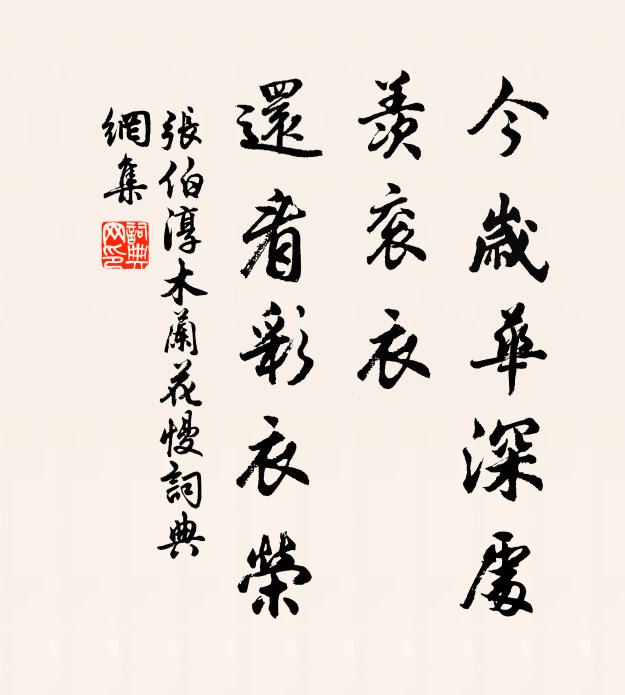 今歲華深處
羨衮衣
還看彩衣榮
張伯淳木蘭花慢詞典
網集
詞典網印